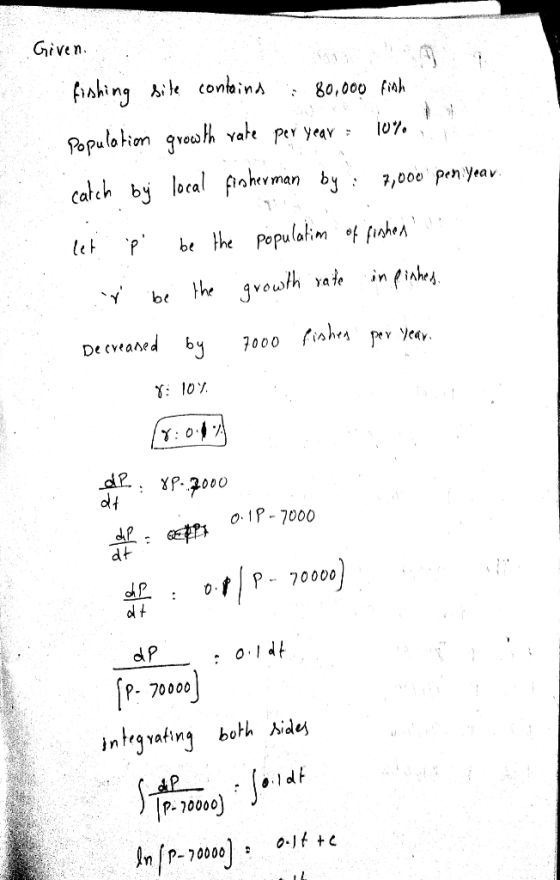 Given.
fishing site contains : 80,000 fish
Population growth rate per year = 10%
catch by local fisherman by : 7,000 per year.
let 'p' be the population of fishes
'r' be the growth rate in fishes.
Decreased by 7000 fishes per year.
r: 10%
r: 0.1%
dP/dt : rP-7000
dP/dt = 0.1P-7000
dP/dt : 0.1[P-70000]
dP/[P-70000] : 0.1dt
integrating both sides
∫dP/[P-70000] = ∫0.1dt
ln[P-70000] = 0.1t+c